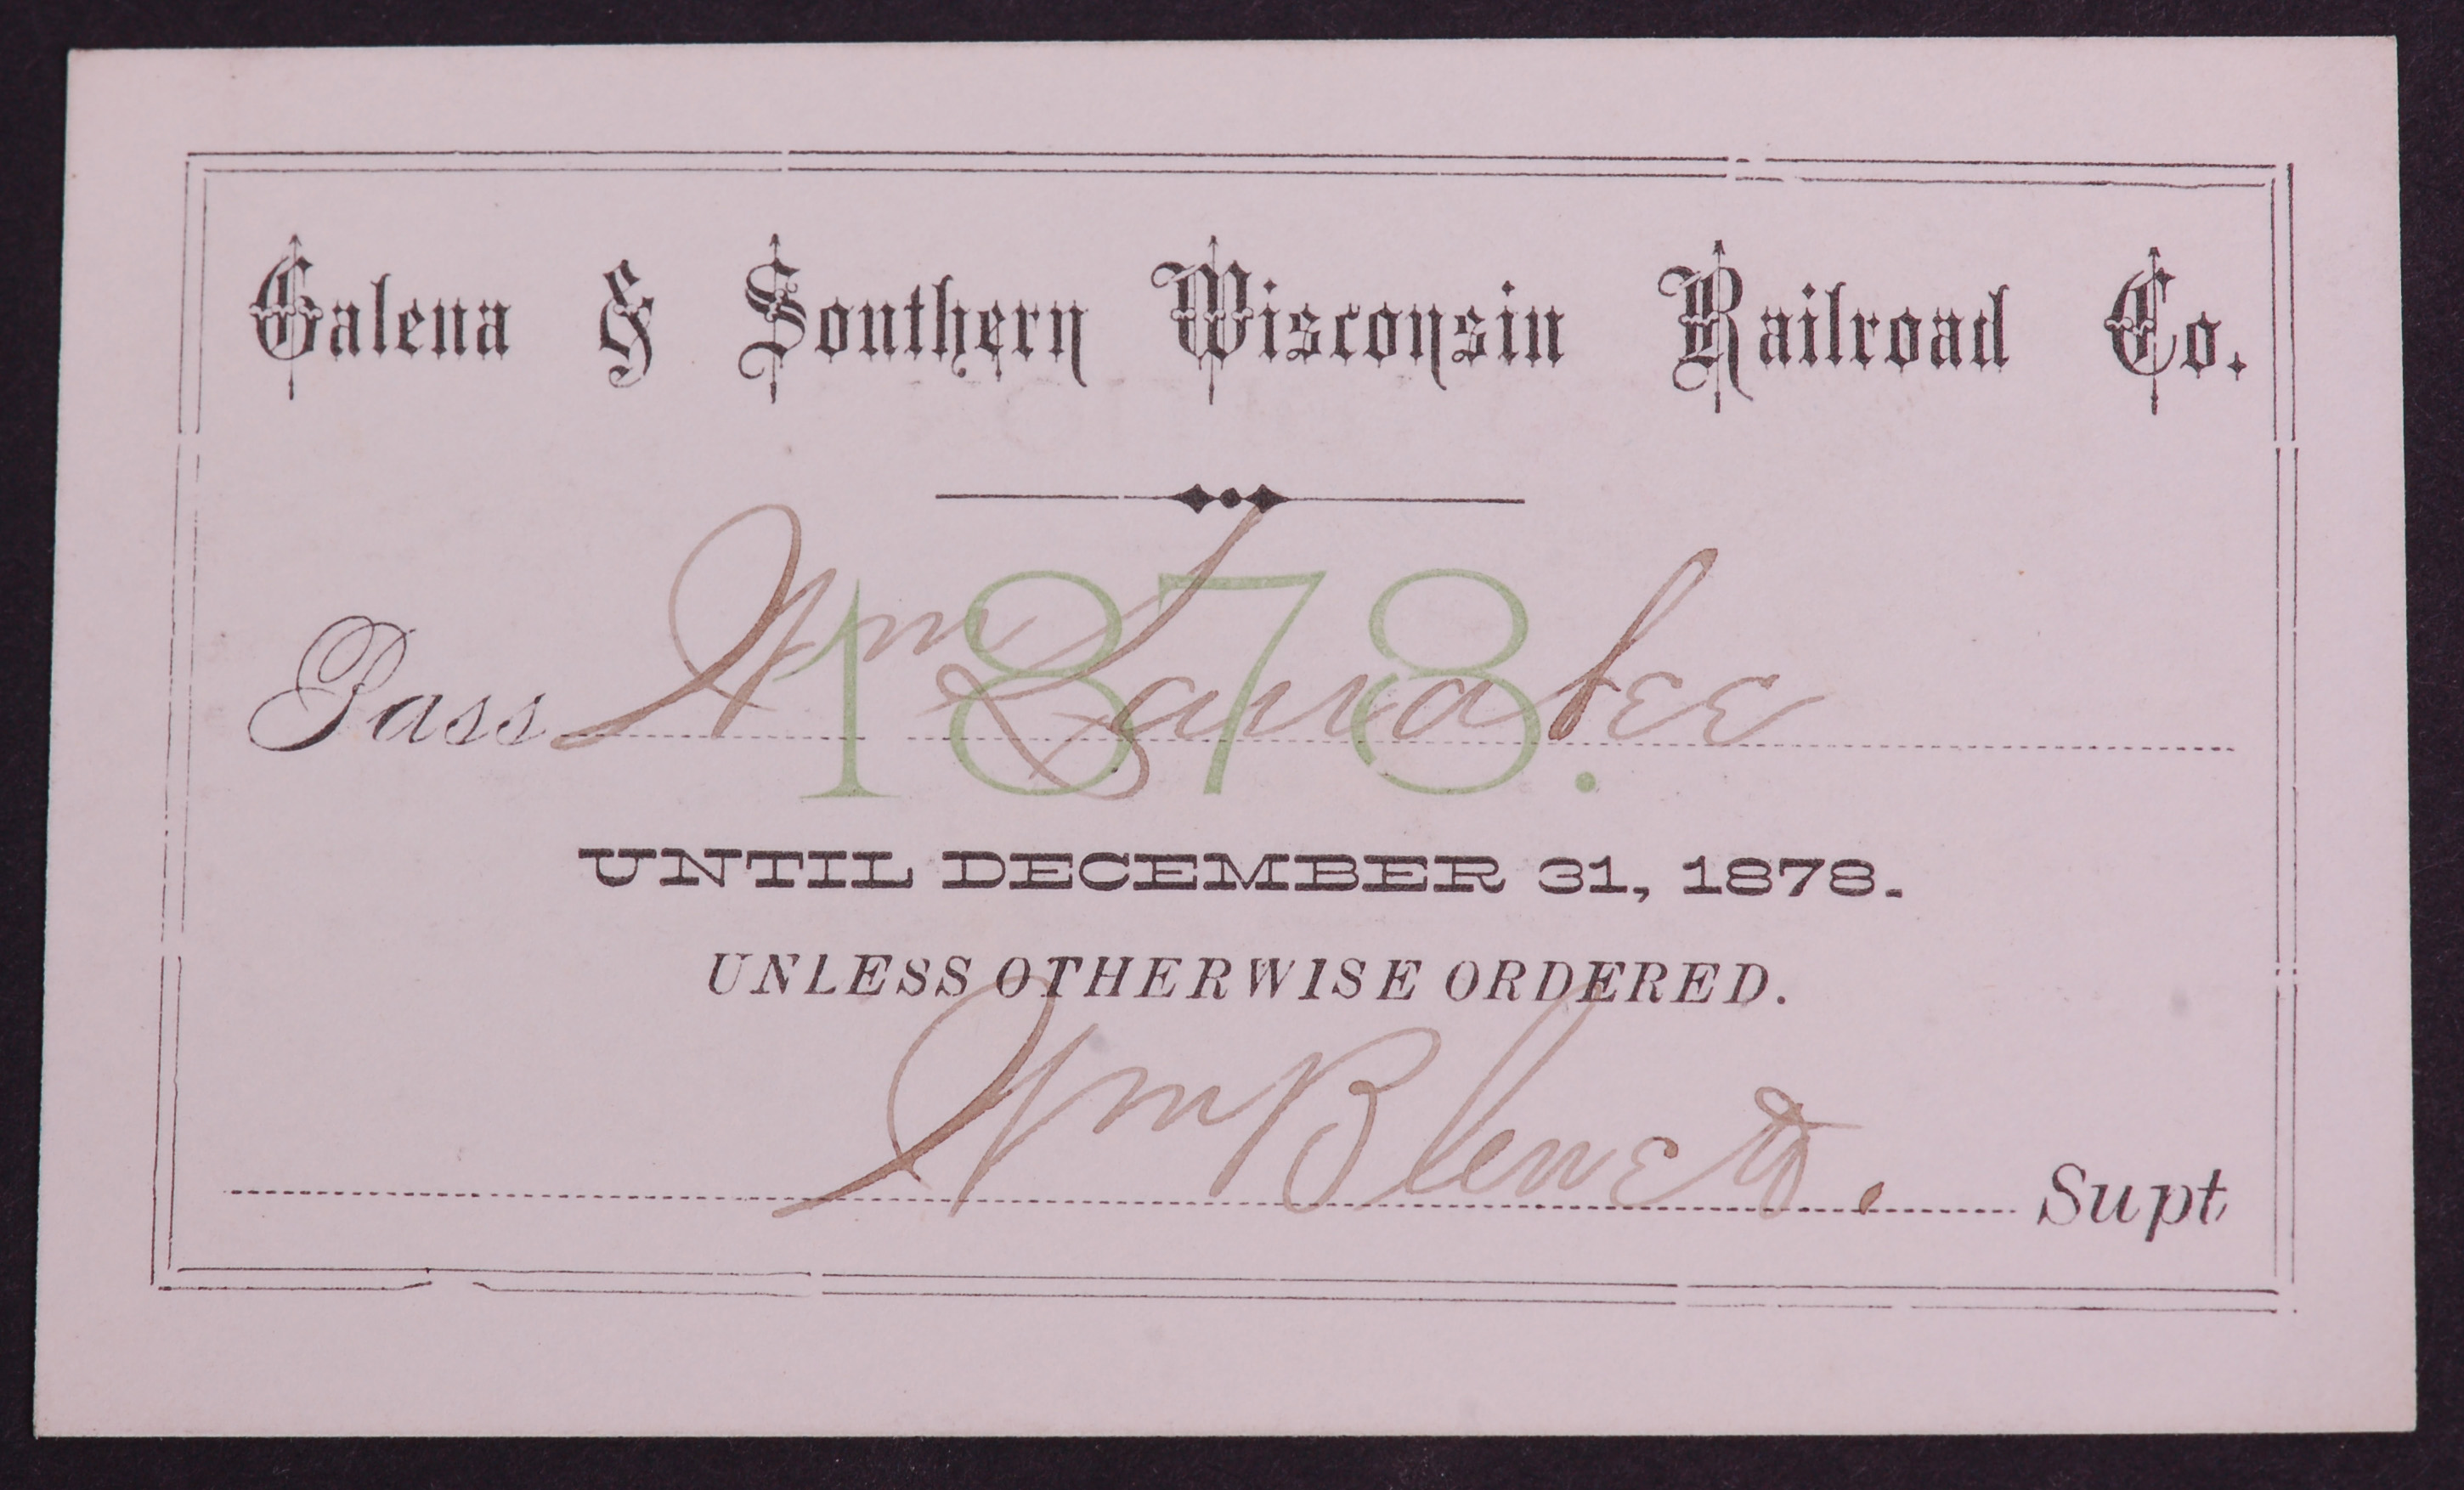 Galena & Southern Wisconsin Railroad Co.
1878.
Pass Wm Larrabee
UNTIL DECEMBER 31, 1878.
UNLESS OTHERWISE ORDERED.
Wm B Supt